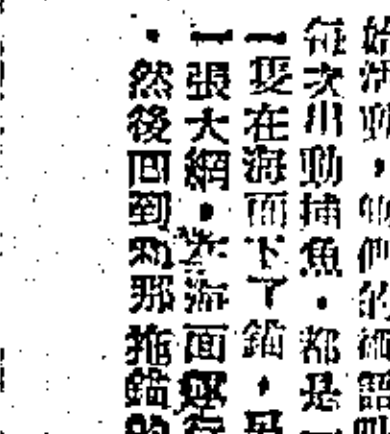 始活動，他們的術語叫
每次出動捕魚，都是一
一隻在海面下了錨，另
一張大網，在海面
，然後回到那拖錨的